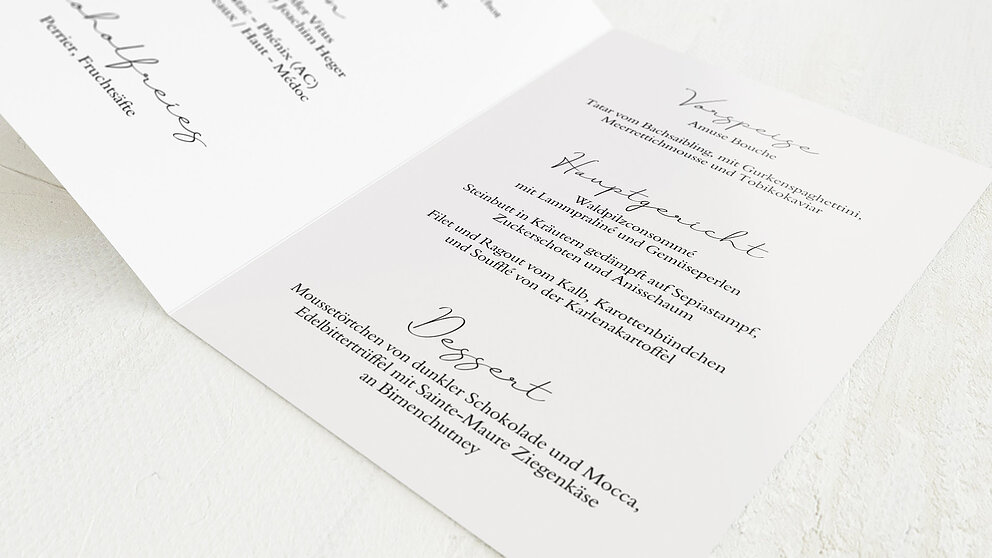 Vitus
Joachim Heger
Phénix (AC)
/ Haut - Médoc
Perrier, Fruchtsäfte
Vorspeise
Amuse Bouche
Tatar vom Bachsaibling, mit Gurkenspaghettini,
Meerrettichmousse und Tobikokaviar
Hauptgericht
Waldpilzconsommé
mit Lammpraliné und Gemüseperlen
Steinbutt in Kräutern gedämpft auf Sepiastampf,
Zuckerschoten und Anisschaum
Filet und Ragout vom Kalb, Karottenbündchen
und Soufflé von der Karlenakartoffel
Dessert
Moussetörtchen von dunkler Schokolade und Mocca,
Edelbittertrüffel mit Sainte-Maure Ziegenkäse
an Birnenchutney